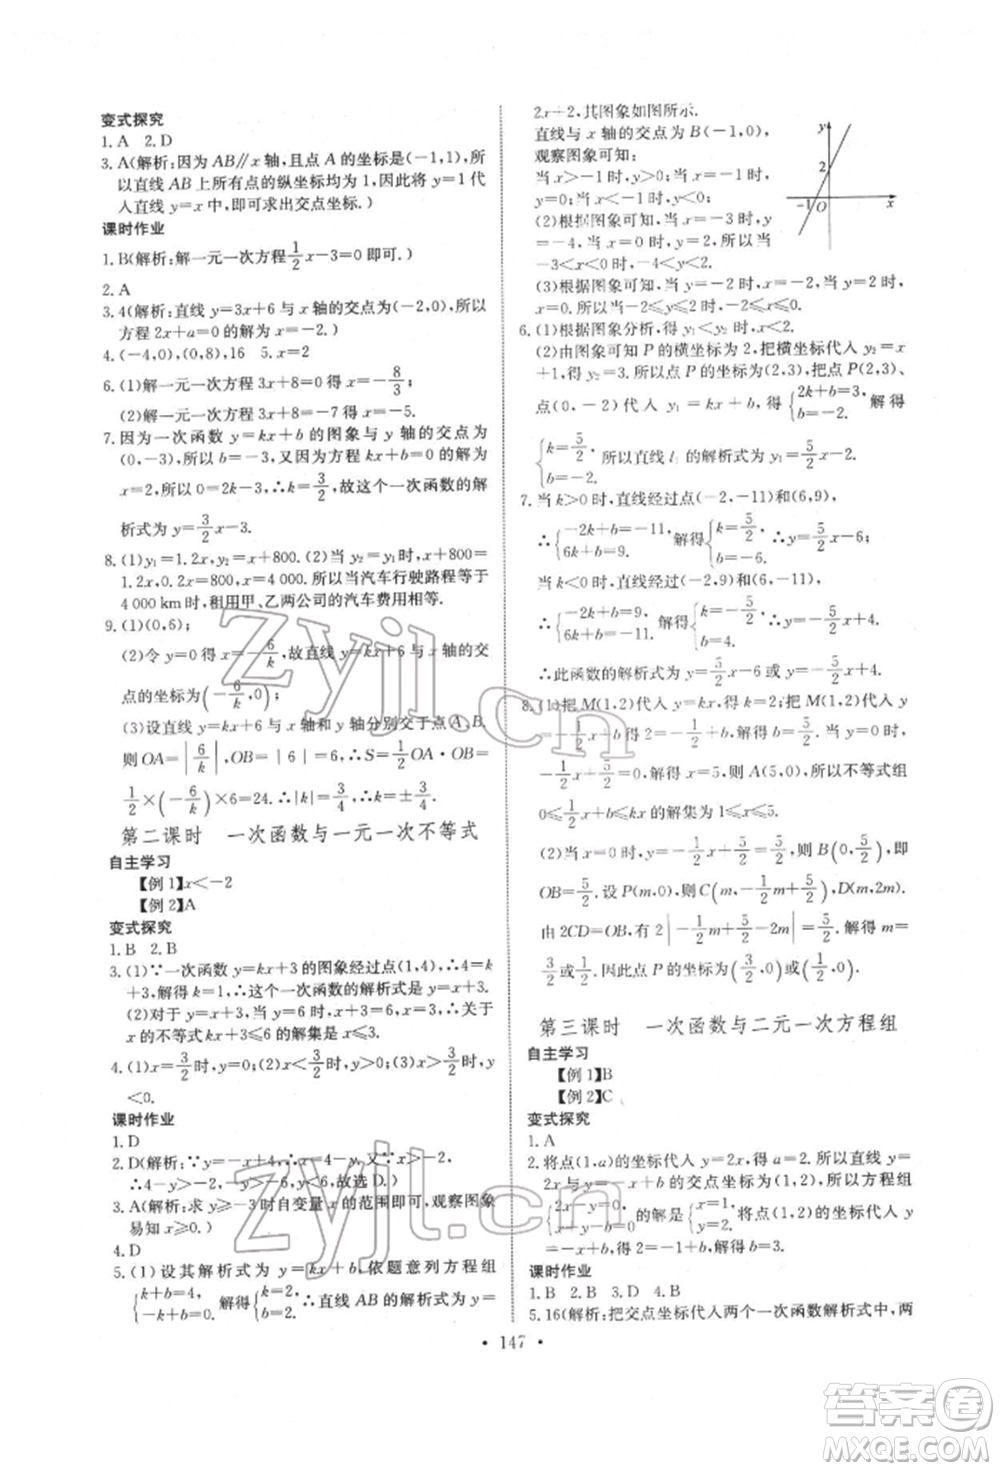 变式探究
1. A  2. D
3. A(解析:因为 AB∥x 轴,且点 A 的坐标是(－1,1),所
以直线 AB 上所有点的纵坐标均为 1,因此将 y＝1 代
人直线 y＝x 中,即可求出交点坐标.)
课时作业
1. B(解析:解一元一次方程 1/2 x－3＝0 即可.)
2. A
3. 4(解析:直线 y＝3x＋6 与 x 轴的交点为(－2,0),所以
方程 2x＋a＝0 的解为 x＝－2.)
4. (－4,0),(0,8),16  5. x＝2
6. (1)解一元一次方程 3x＋8＝0 得 x＝－8/3;
(2)解一元一次方程 3x＋8＝－7 得 x＝－5.
7. 因为一次函数 y＝kx＋b 的图象与 y 轴的交点为
(0,－3),所以 b＝－3,又因为方程 kx＋b＝0 的解为
x＝2,所以 0＝2k－3,∴k＝3/2,故这个一次函数的解
析式为 y＝3/2 x－3.
8. (1)y₁＝1.2x,y₂＝x＋800. (2)当 y₁＝y₂ 时,x＋800＝
1.2x,x＝4 000.所以当汽车行驶路程等于
4 000 km时,租用甲、乙两公司的汽车费用相等.
9. (1)(0,6);
(2)令 y＝0 得 x＝－6/k,故直线 y＝kx＋6 与 x 轴的交
点的坐标为(－6/k,0);
(3)设直线 y＝kx＋6 与 x 轴和 y 轴分别交于点 A、B,
则 OA＝|6/k|,OB＝|6|＝6.∴S＝1/2 OA·OB＝
1/2×(－6/k)×6＝24.∴|k|＝3/4,∴k＝±3/4.
第二课时 一次函数与一元一次不等式
自主学习
【例 1】x＜－2
【例 2】A
变式探究
1. B  2. B
3. (1)∵一次函数 y＝kx＋3 的图象经过点(1,4),∴4＝k
＋3,解得 k＝1,∴这个一次函数的解析式为 y＝x＋3.
(2)对于 y＝x＋3,当 y＝6 时,x＝3,∴关于
x 的不等式 kx＋3≤6 的解集是 x≤3.
4. (1)x＝3/2 时,y＝0;(2)x＜3/2 时,y＞0;(3)x＞3/2 时,y
＜0.
课时作业
1. D
2. D(解析:∵y＝－x＋4,∴x＝4－y,又∵x＞－2,
∴4－y＞－2,∴y＜6,故选 D.)
3. A(解析:求 y≥－3时自变量 x 的范围即可,观察图象
易知 x≥0.)
4. D
5. (1)设其解析式为 y＝kx＋b,依题意列方程组
{k＋b＝4, －k＋b＝0, 解得{k＝2, b＝2, ∴直线 AB 的解析式为 y＝
2x＋2,其图象如图所示.
直线与 x 轴的交点为 B(－1,0),
观察图象可知:
当 x＞－1 时,y＞0;当 x＝－1
时,y＝0;当 x＜－1 时,y＜0.
(2)根据图象可知:当 x＝－3 时,y
＝－4,当 x＝0 时,y＝2,所以当
－3＜x＜0 时,－4＜y＜2.
(3)根据图象可知:当 y＝－2 时,x＝－2;当 y＝2 时,
x＝0.所以当－2≤y≤2 时,－2≤x≤0.
y
2
－1 O x
6. (1)根据图象分析,得 y₁＜y₂ 时,x＜2.
(2)由图象可知 P 的横坐标为 2,把横坐标代入 y₂＝
x＋1,得 y₂＝3.所以点 P 的坐标为(2,3),把点 P(2,3)、
点(0,－2)代入 y₁＝kx＋b,得{2k＋b＝3, b＝－2. 解得
{k＝5/2, b＝－2. 所以直线 l₁ 的解析式为 y₁＝5/2 x－2.
7. 当 k＞0 时,直线经过点(－2,－11)和(6,9),
∴{－2k＋b＝－11, 6k＋b＝9. 解得{k＝5/2, b＝－6. ∴y＝5/2 x－6;
当 k＜0 时,直线经过点(－2,9)和(6,－11),
∴{－2k＋b＝9, 6k＋b＝－11. 解得{k＝－5/2, b＝4. ∴y＝－5/2 x＋4.
∴此函数的解析式为 y＝5/2 x－6或 y＝－5/2 x＋4.
8. (1)把 M(1,2)代入 y＝kx,得 k＝2;把 M(1,2)代入 y＝
－1/2 x＋b 得 2＝－1/2＋b,解得 b＝5/2,当 y＝0 时,－
1/2 x＋5/2＝0,解得 x＝5,则 A(5,0),所以不等式组
0≤－1/2 x＋b≤kx 的解集为 1≤x≤5.
(2)当 x＝0 时,y＝－1/2 x＋5/2＝5/2,则 B(0,5/2),即
OB＝5/2.设 P(m,0),则 C(m,－1/2 m＋5/2),D(m,2m).
由 2CD＝OB,有 2|－1/2 m＋5/2－2m|＝5/2.解得 m＝
3/2或1/2.因此点 P 的坐标为(3/2,0)或(1/2,0).
第三课时 一次函数与二元一次方程组
自主学习
【例 1】B
【例 2】C
变式探究
1. A
2. 将点(1,a)的坐标代入 y＝2x,得 a＝2,所以直线 y＝
2x 与 y＝－x＋b 的交点坐标为(1,2),所以方程组
{2x－y＝0, x＋y－b＝0 的解是{x＝1, y＝2, 将点(1,2)的坐标代入 y
＝－x＋b,得 2＝－1＋b,解得 b＝3.
课时作业
1. B  2. B  3. D  4. B
5. 16(解析:把交点坐标代入两个一次函数解析式中,两
• 147 •
Zyjl.cn
zyjl.cn
答案卷
MXQE.COM